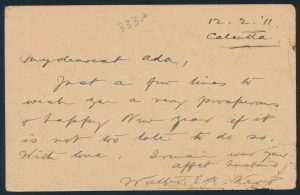 333A
12. 2. '11.
Calcutta
My dearest Ada,
Just a few lines to
wish you a very prosperous
& happy New Year if it
is not too late to do so.
With love, I remain your
affect husband
Walter